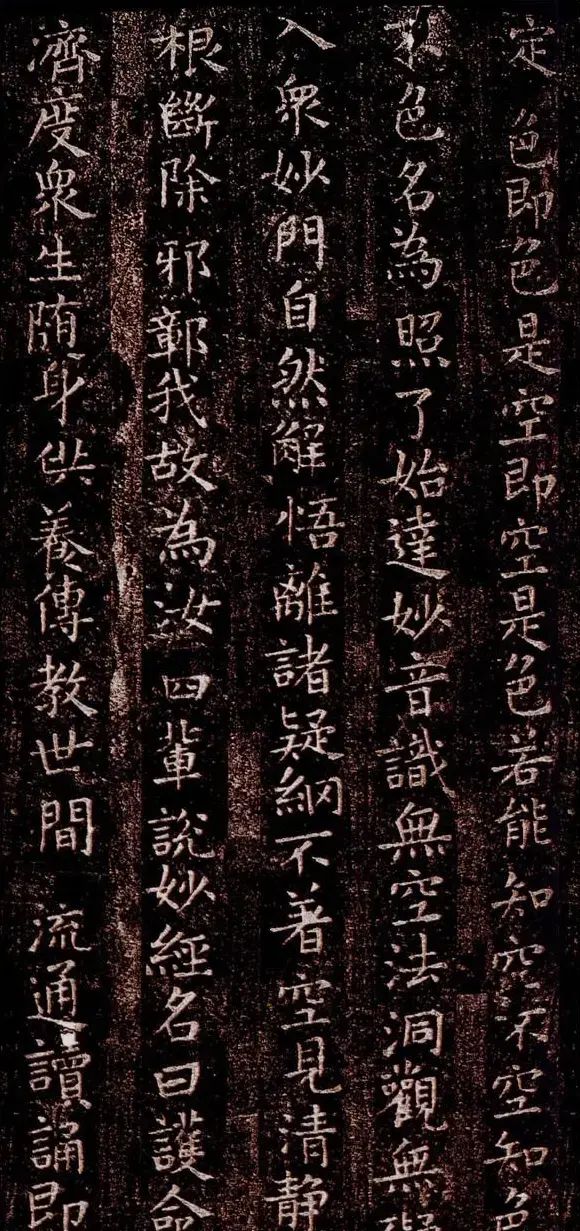 定色即色是空即空是色若能知空不空知色
不色名為照了始達妙音識無空法洞觀無礙
入眾妙門自然解悟離諸疑網不著空見清靜
根斷除邪鄣我故為汝四輩說妙經名曰護命
濟度眾生随身供養傳教世間流通讀誦即